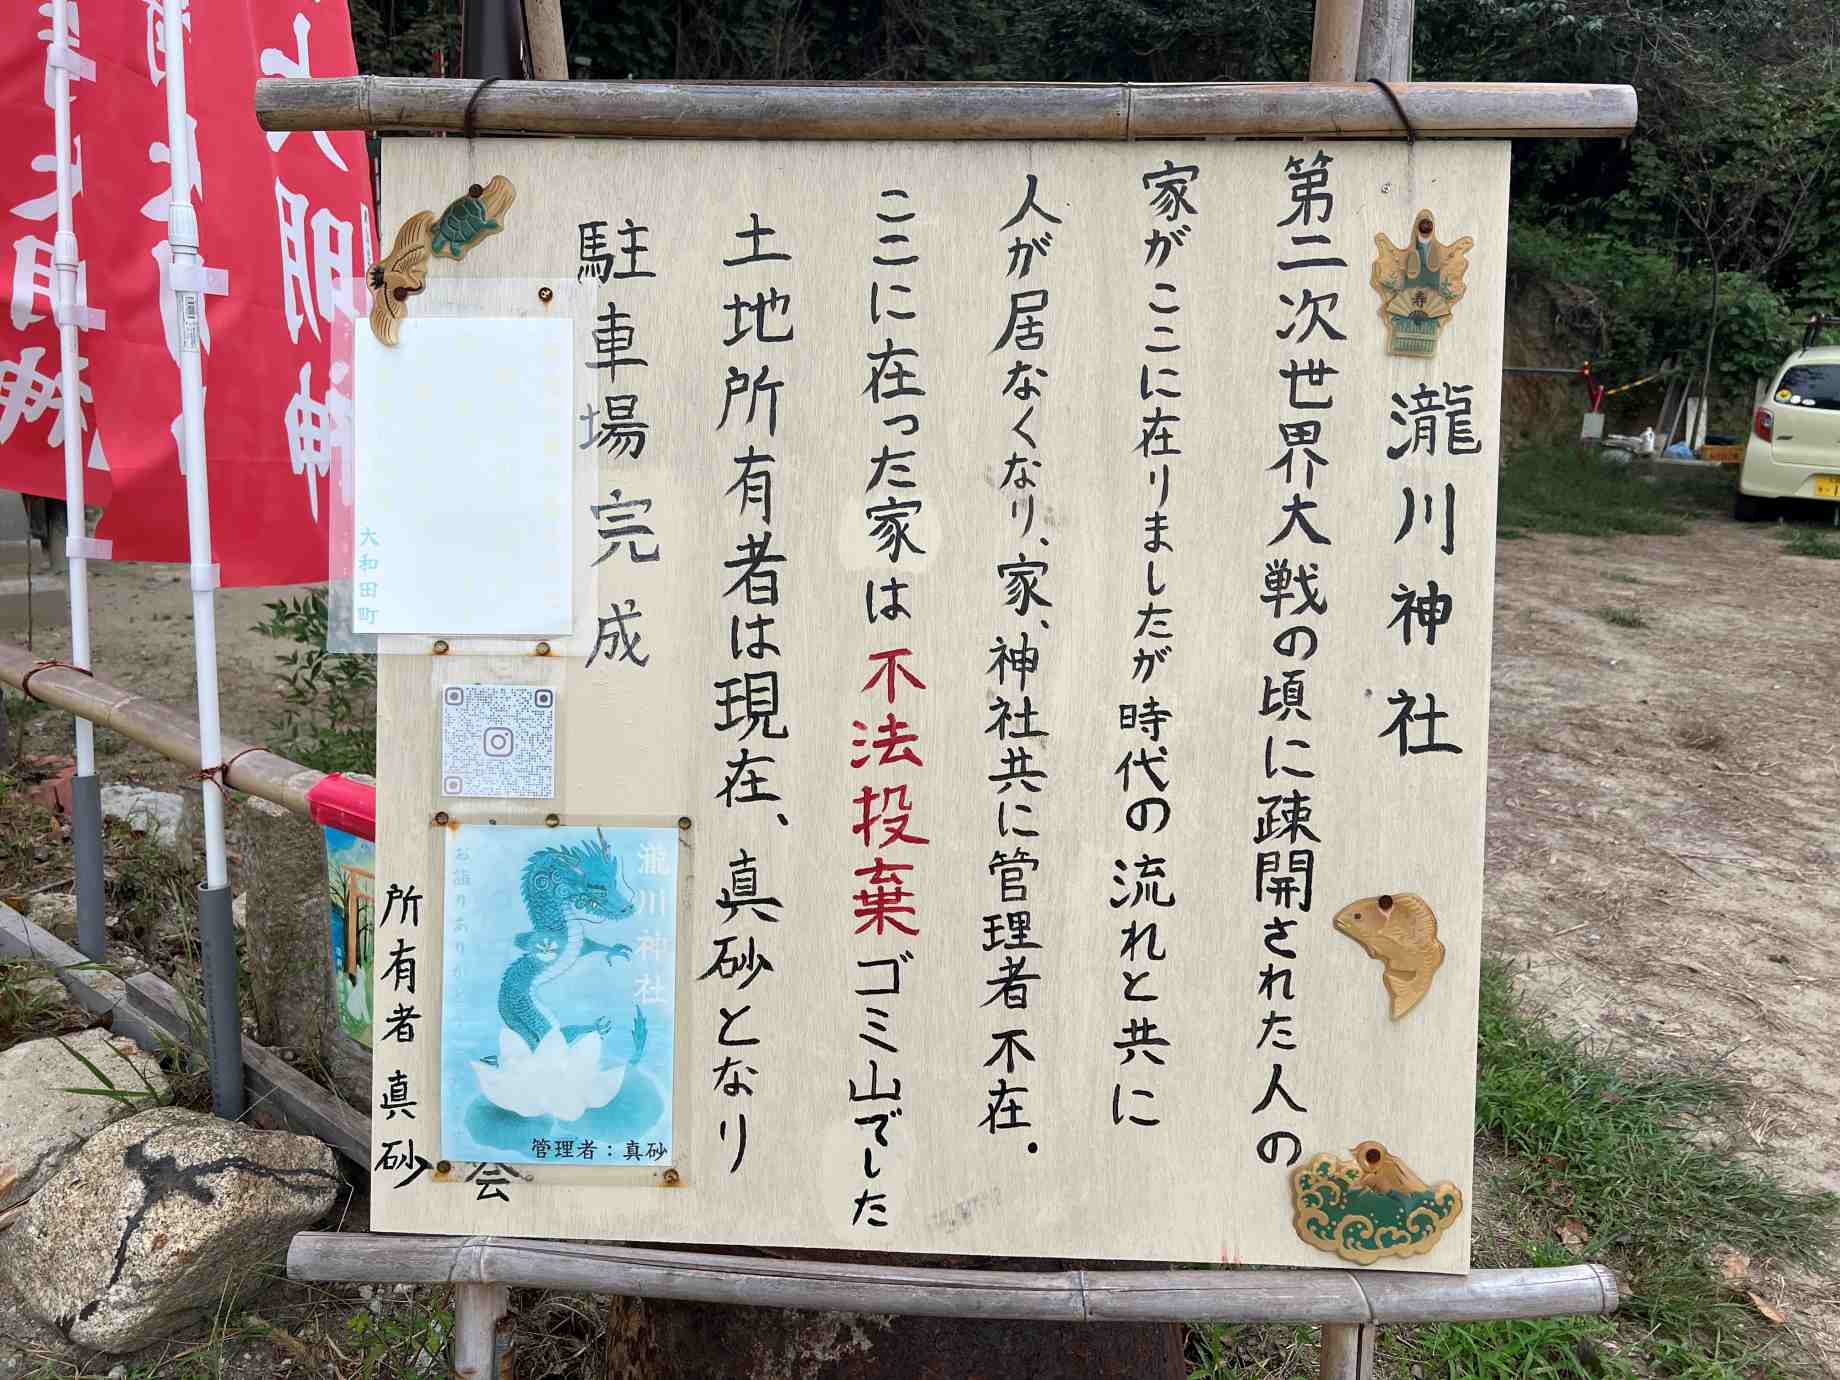 瀧川神社
第二次世界大戦の頃に疎開された人の
家がここに在りましたが時代の流れと共に
人が居なくなり、家、神社共に管理者不在.
ここに在った家は不法投棄ゴミ山でした
土地所有者は現在、真砂となり
駐車場完成
大和田町
瀧川神社
管理者：真砂
会
所有者真砂
大明神
寿